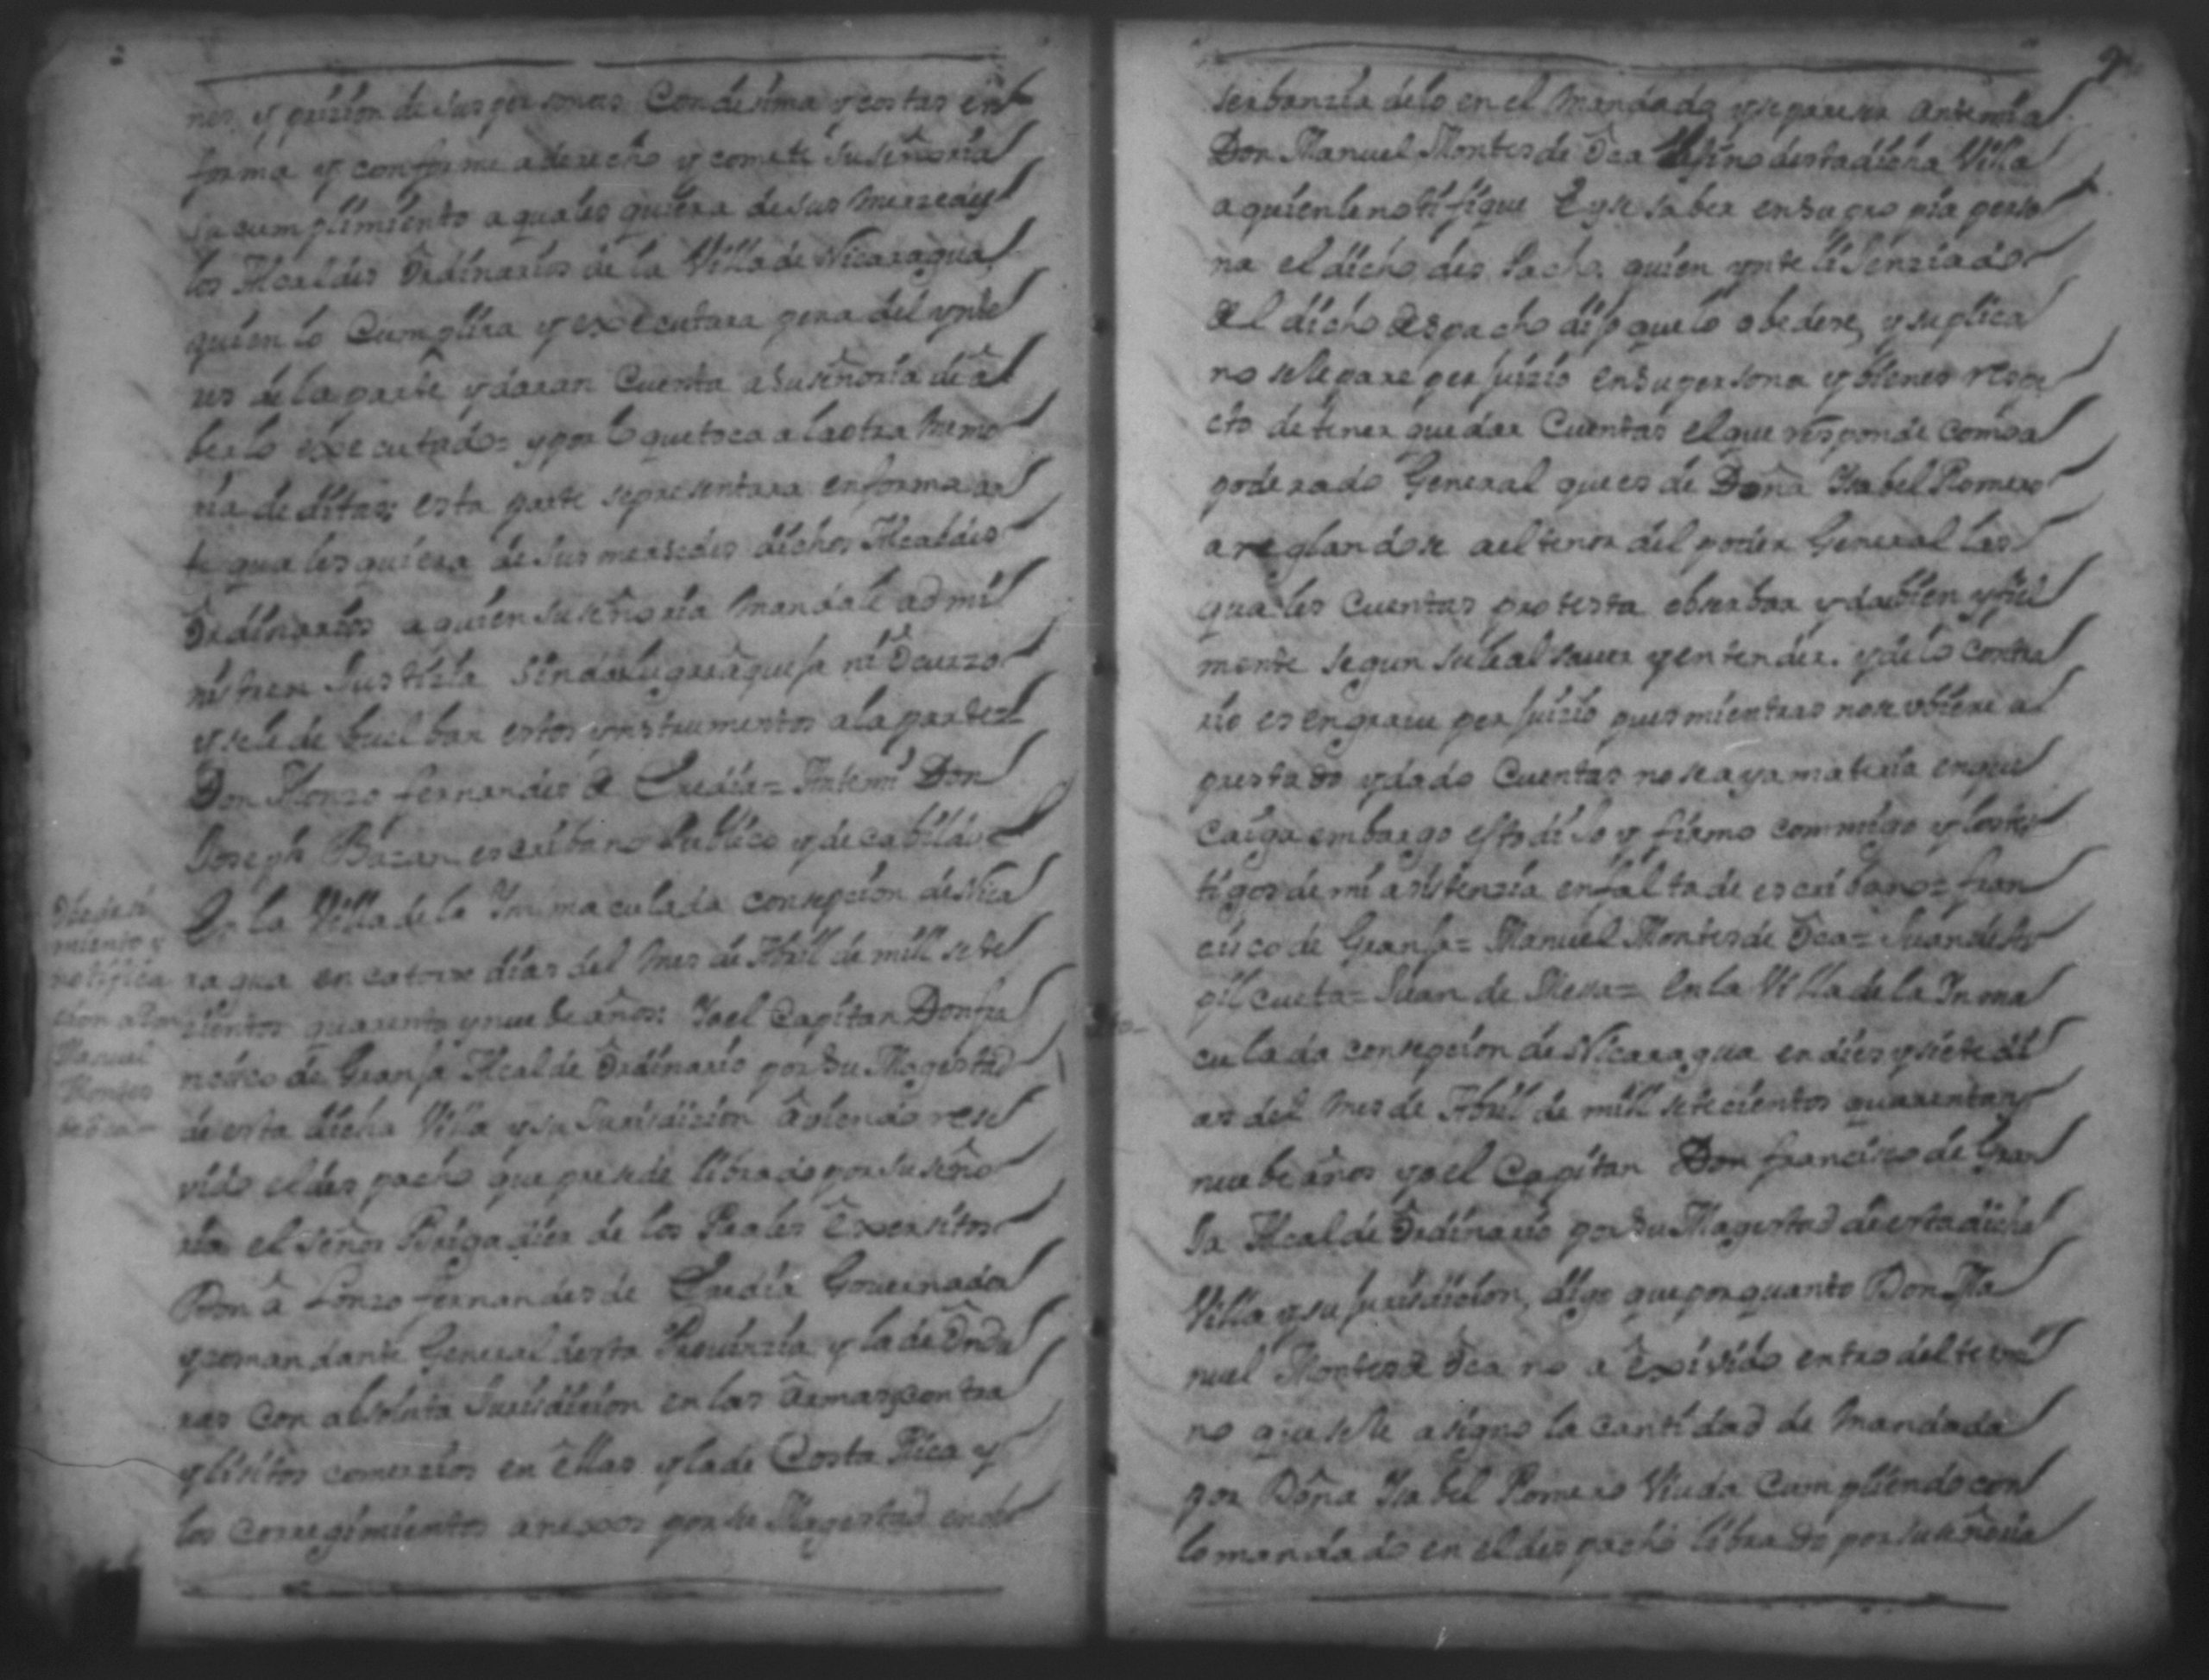 nes, y prizion de sus personas Con desima y costas en
forma y conforme a derecho y comete su señoria
su cumplimiento a quales quiera de sus merzedes
los Alcaldes Ordinarios de la Villa de Nicaragua
quien lo Cumplira y executara pena del ynte
res de la parte y daran Cuenta a su señoria de a
berlo executado = y por lo que toca a la otra memo
ria de ditas; esta parte se presentara en forma an
te quales quiera de sus mersedes dichos Alcaldes
Ordinarios a quien su señoria manda le admi
nistren Justizia sin dar lugar a quexa ni Ocurzo
y se le debuelban estos ynstrumentos a la parte =
Don Alonzo fernandes de Eredia = Ante mi Don
Joseph Bazan escribano Publico y de cabildo =
Obedesi
miento y
notifica
cion a Don
Manuel
Montes
de Oca =
En la Villa de la Inmaculada consepcion de Nica
ragua en catorse dias del mes de Abril de mill sete
cientos quarenta y nuebe años: Yo el Capitan Don fra
ncisco de Granja Alcalde Ordinario por Su Magestad
de esta dicha Villa y su Jurisdicion Abiendo rese
vido el des pacho que presede librado por su seño
ria el señor Brigadier de los Reales Exersitos
Don Alonzo fernandes de Eredia Governador
y comandante General desta Provinzia, y la de Ondu
ras Con absoluta Jurisdicion en las Armas, contra
y lisitos comerzios en ellas y la de Costa Rica y
los Corregimientos anexos por su Magestad en ob
serbanzia de lo en el mandado yse paresca ante mi a
Don Manuel Montes de Oca Vesino desta dicha Villa
a quien le notifique E yse saber en su propia perso
na el dicho des Pacho, quien yntelisenziado
del dicho despacho dijo que lo obedese, y suplica
no se le pare perjuizio en su persona y bienes respe
cto de tener que dar Cuentas el que responde como a
poderado General que es de Doña Isabel Romero
areglandose a el tenor del poder General las
quales Cuentas protesta observar y dar bien y fiel
mente segun su leal saver y entender. y de lo contra
rio es en grave perjuizio pues mientras no se ubiere a
justado y dado Cuentas no se aya materia en que
Caiga embargo esto dijo y firmo conmigo y los tes
tigos de mi asistenzia en falta de escribano = fran
cisco de Granja = Manuel Montes de Oca = Juan de
pilcueta = Juan de Mesa = En la Villa de la Inma
culada consepcion de Nicaragua en dies y siete di
as del mes de Abril de mill setecientos quarenta y
nuebe años yo el Capitan Don francisco de Gran
ja Alcalde Ordinario por Su Magestad de esta dicha
Villa y su jurisdicion, digo que por quanto Don Ma
nuel Montes de Oca no a Exivido entro del termi
no que se le asigno la cantidad de mandada
por Doña Isabel Romero Viuda Cumpliendo con
lo mandado en el des pacho librado por su señoria